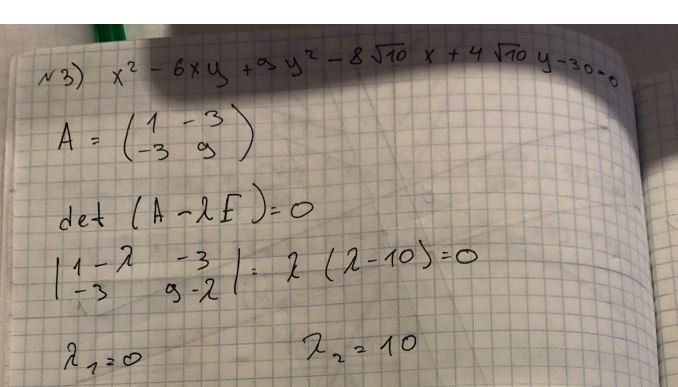 №3) x² - 6xy + 9y² - 8√10 x + 4√10 y - 30 = 0
A = (1 -3
-3 9)
det (A - λE) = 0
|1 - λ -3
-3 9 - λ| = λ (λ - 10) = 0
λ₁ = 0 λ₂ = 10